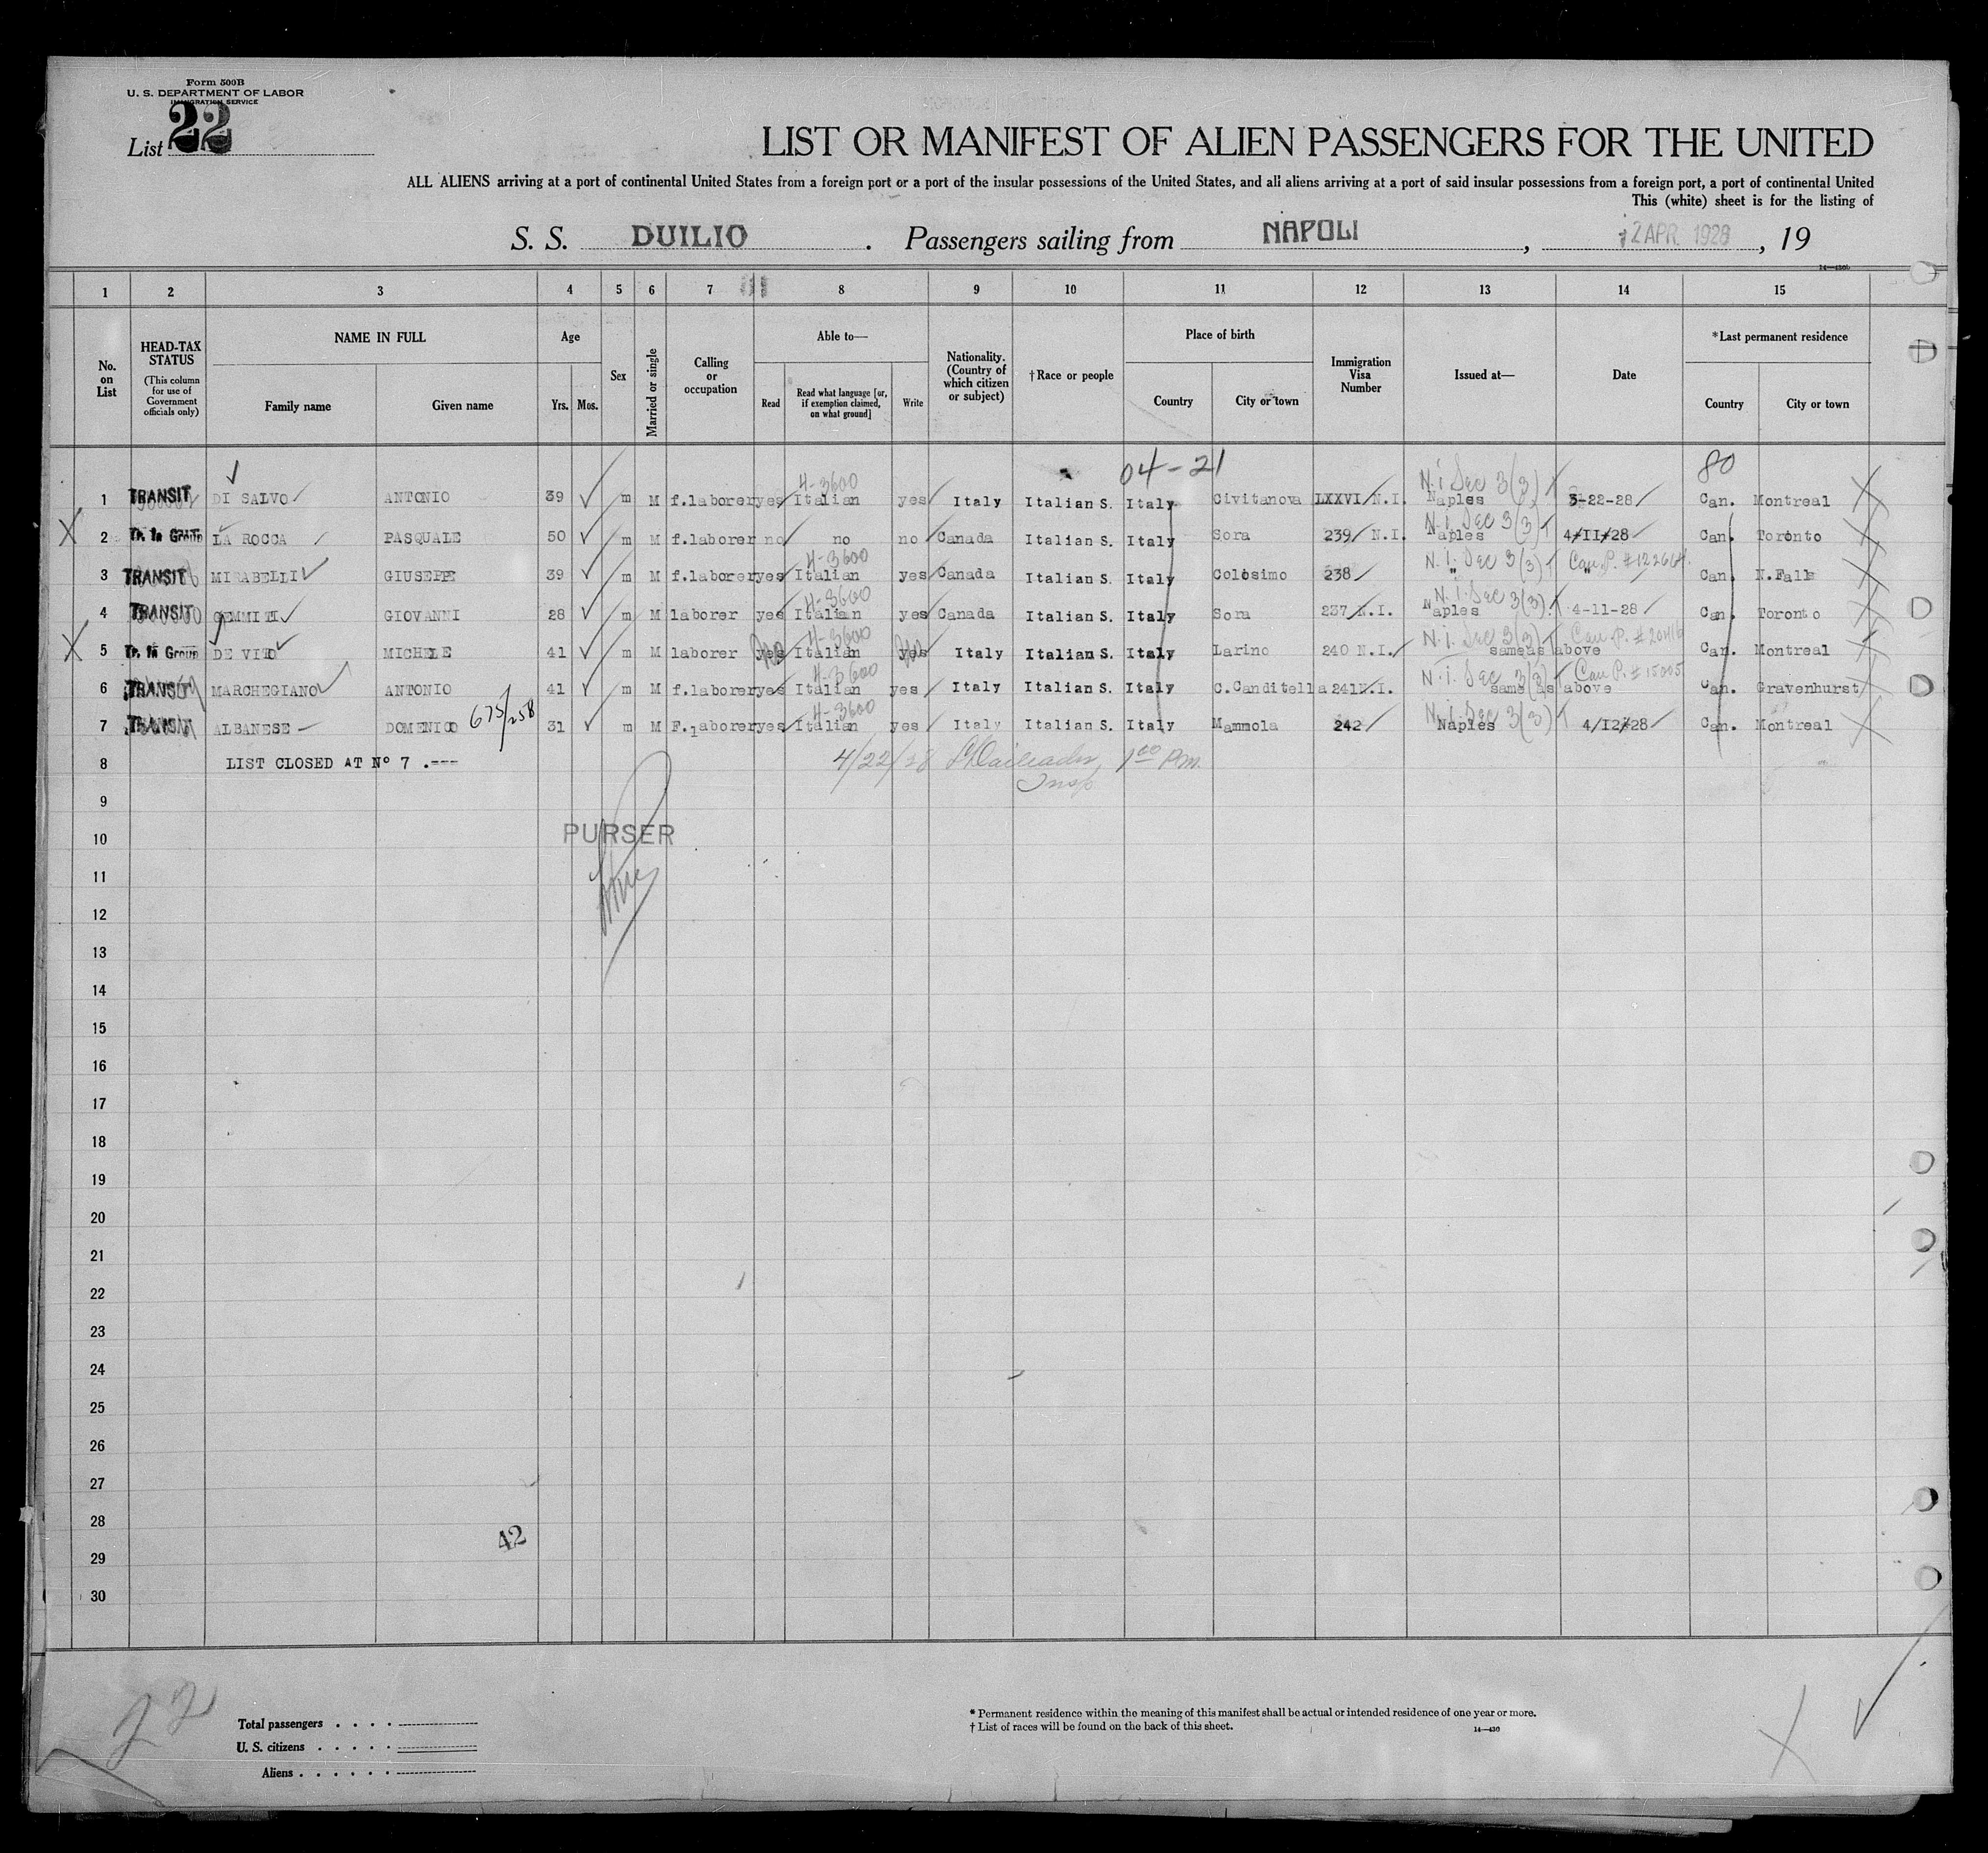 Form 500B
U. S. DEPARTMENT OF LABOR
IMMIGRATION SERVICE
List 22
LIST OR MANIFEST OF ALIEN PASSENGERS FOR THE UNITED
ALL ALIENS arriving at a port of continental United States from a foreign port or a port of the insular possessions of the United States, and all aliens arriving at a port of said insular possessions from a foreign port, a port of continental United
This (white) sheet is for the listing of
S. S. DUILIO . Passengers sailing from NAPOLI , 12 APR. 1928 , 19
14—430b
1 2 3 4 5 6 7 8 9 10 11 12 13 14 15
No. on List
HEAD-TAX STATUS
(This column for use of Government officials only)
NAME IN FULL
Family name Given name
Age
Yrs. Mos.
Sex
Married or single
Calling or occupation
Able to—
Read
Read what language [or, if exemption claimed, on what ground]
Write
Nationality. (Country of which citizen or subject)
†Race or people
Place of birth
Country City or town
Immigration Visa Number
Issued at—
Date
*Last permanent residence
Country City or town
04-21 80
4-3600 N.i Sec 3(3)
1 TRANSIT DI SALVO ANTONIO 39 m M f.laborer yes Italian yes Italy Italian S. Italy Civitanova LXXVI N.I. Naples 3-22-28 Can. Montreal
N.i. Sec 3(3)
2 Tr. in Group LA ROCCA PASQUALE 50 m M f.laborer no no no Canada Italian S. Italy Sora 239 N.I. Naples 4/II/28 Can. Toronto
4-3600 N.i. Sec 3(3) Can. P. #12266
3 TRANSIT MIRABELLI GIUSEPPE 39 m M f.laborer yes Italian yes Canada Italian S. Italy Colosimo 238 " " Can. N.Falls
4-3600 N.i. Sec 3(3)
4 TRANSIT GEMMITI GIOVANNI 28 m M laborer yes Italian yes Canada Italian S. Italy Sora 237 N.I. Naples 4-11-28 Can. Toronto
4-3600 N.i. Sec 3(3) Can. P. #20416
5 Tr. in Group DE VITO MICHELE 41 m M laborer yes Italian yes Italy Italian S. Italy Larino 240 N.I. same as above Can. Montreal
4-3600 N.i. Sec 3(3) Can P. #15005
6 TRANSIT MARCHEGIANO ANTONIO 41 m M f.laborer yes Italian yes Italy Italian S. Italy C.Canditella 241 N.I. same as above Can. Gravenhurst
4-3600 N.i. Sec 3(3)
7 TRANSIT ALBANESE DOMENICO 675/258 31 m M F.laborer yes Italian yes Italy Italian S. Italy Mammola 242 Naples 4/12/28 Can. Montreal
8 LIST CLOSED AT N° 7 .--- 4/22/28 1 00 P.m.
Insp
9
10 PURSER
11
12
13
14
15
16
17
18
19
20
21
22
23
24
25
26
27
28
42
29
30
22
Total passengers
U. S. citizens
Aliens
* Permanent residence within the meaning of this manifest shall be actual or intended residence of one year or more.
† List of races will be found on the back of this sheet.
14—430